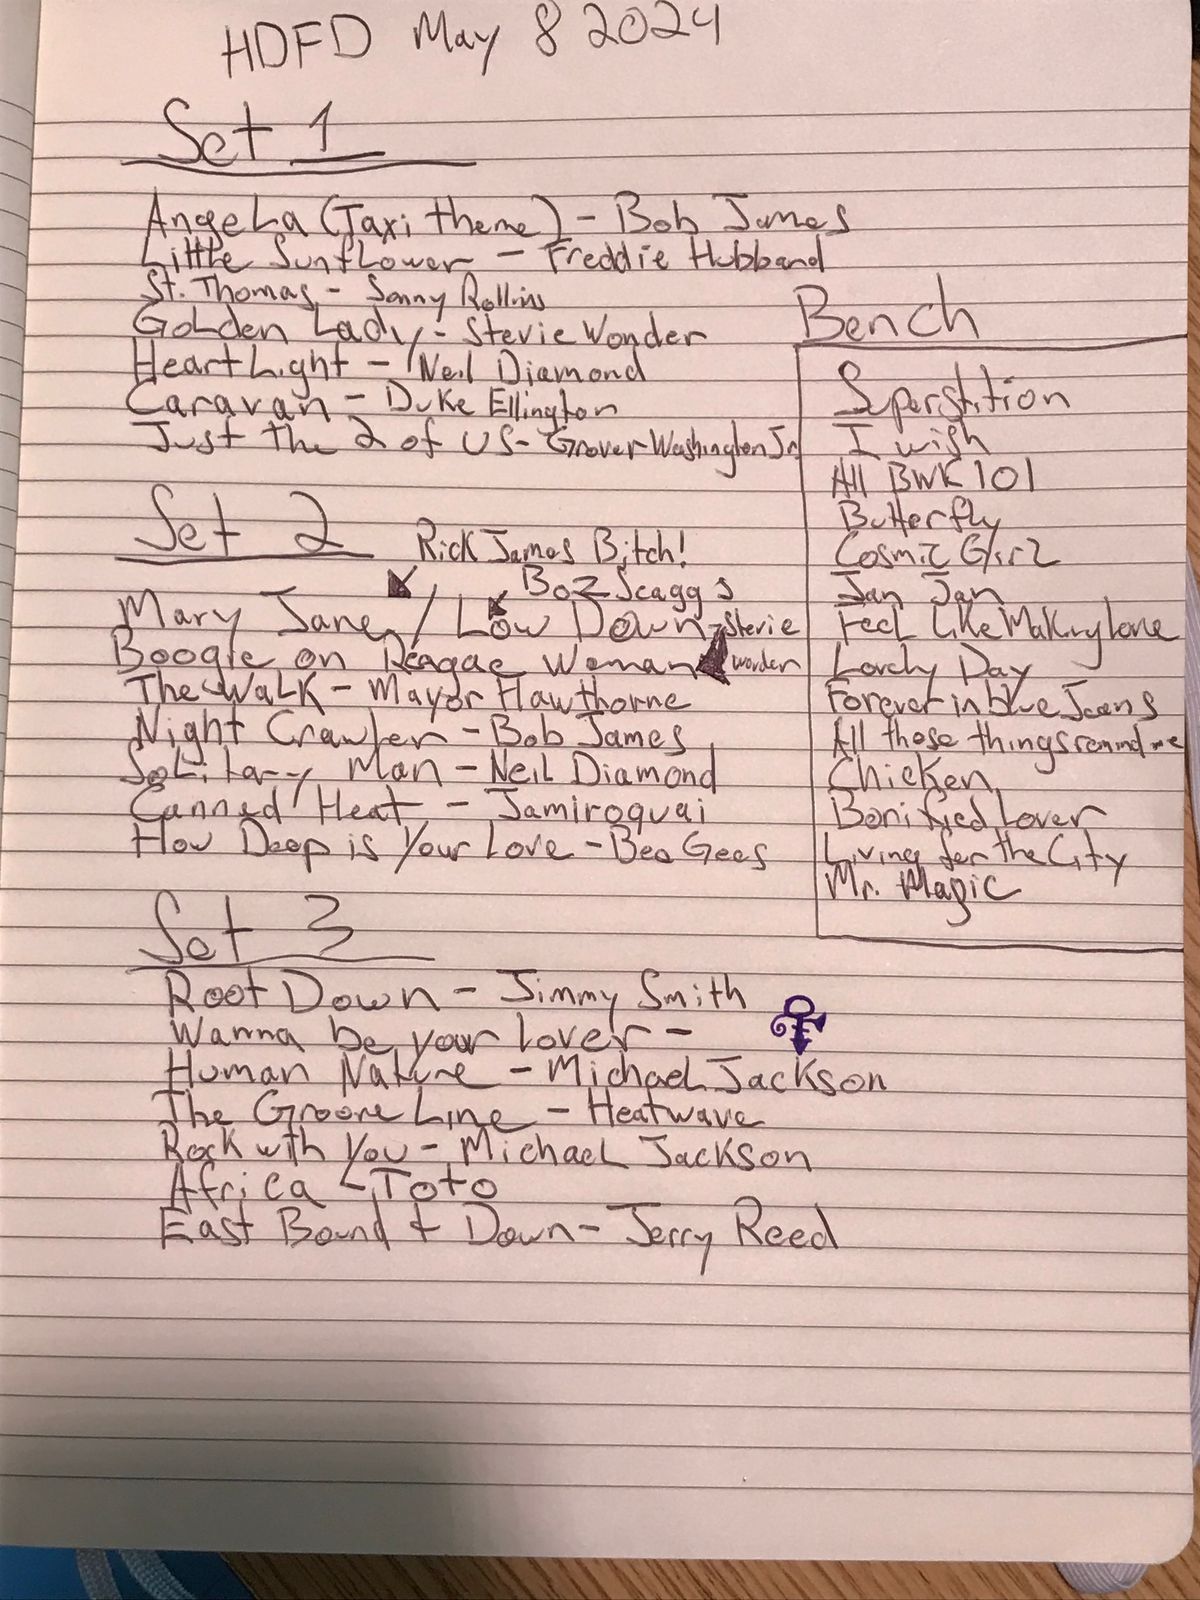 HDFD May 8 2024
Set 1
Angela (Taxi theme) - Bob James
Little Sunflower - Freddie Hubband
St. Thomas - Sonny Rollins
Golden Lady - Stevie Wonder
Heart Light - Neil Diamond
Caravan - Duke Ellington
Just the 2 of us - Grover Washington Jr.
Set 2
Rick James Bitch!
Boz Scaggs
Mary Jane / Low Down - Stevie
Boogie on Reagae Woman wonder
The Walk - Mayor Hawthorne
Night Crawler - Bob James
Solitary Man - Neil Diamond
Canned Heat - Jamiroquai
How Deep is Your Love - Bee Gees
Set 3
Root Down - Jimmy Smith
Wanna be your lover -
Human Nature - Michael Jackson
The Groove Line - Heatwave
Rock with You - Michael Jackson
Africa - Toto
East Bound + Down - Jerry Reed
Bench
Superstition
I wish
All BWK 101
Butterfly
Cosmic Girl
Jan Jan
Feel Like Making love
Lovely Day
Forever in blue Jeans
All those things remind me
Chicken
Bonified Lover
Living for the City
Mr. Magic